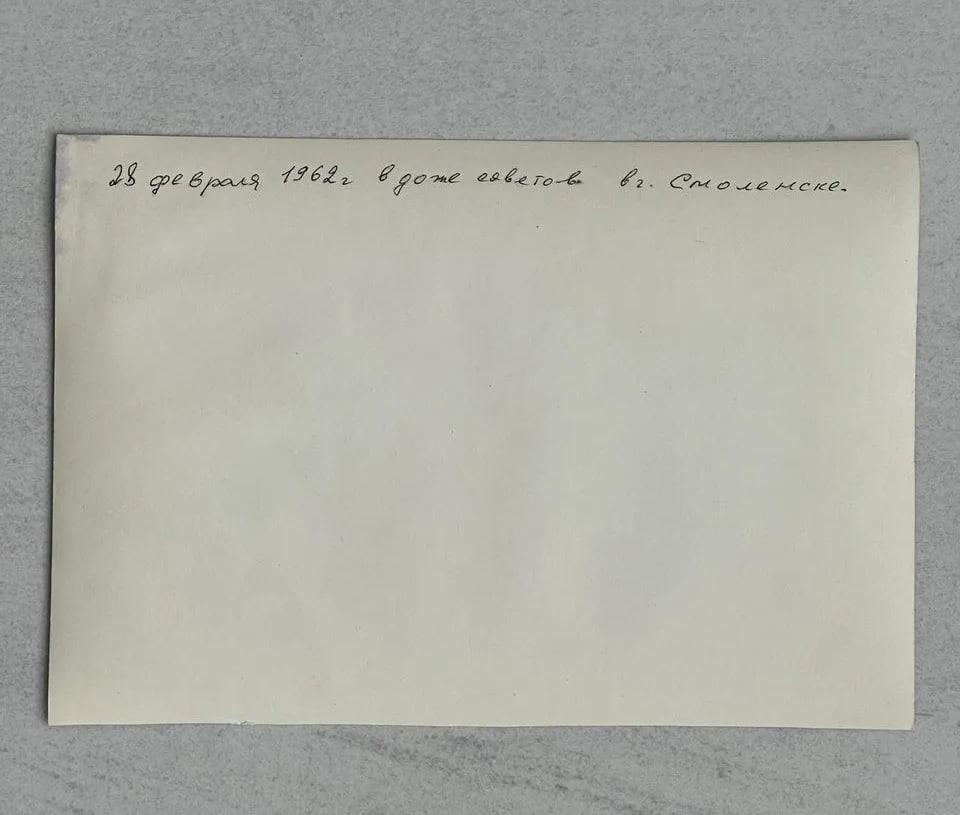 28 февраля 1962г в доме советов в г. Смоленске.